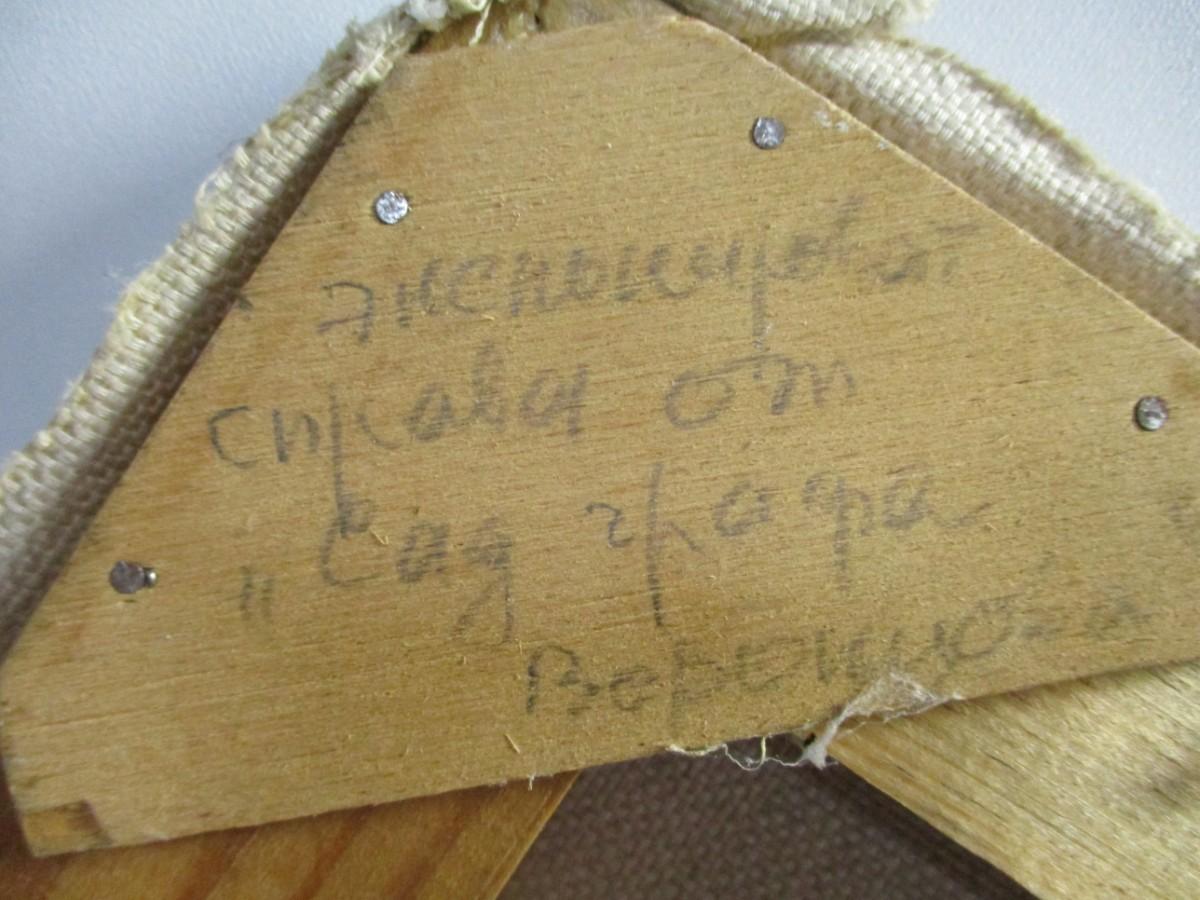 экспонирoват
справа от
"Сад графа
Воронцова